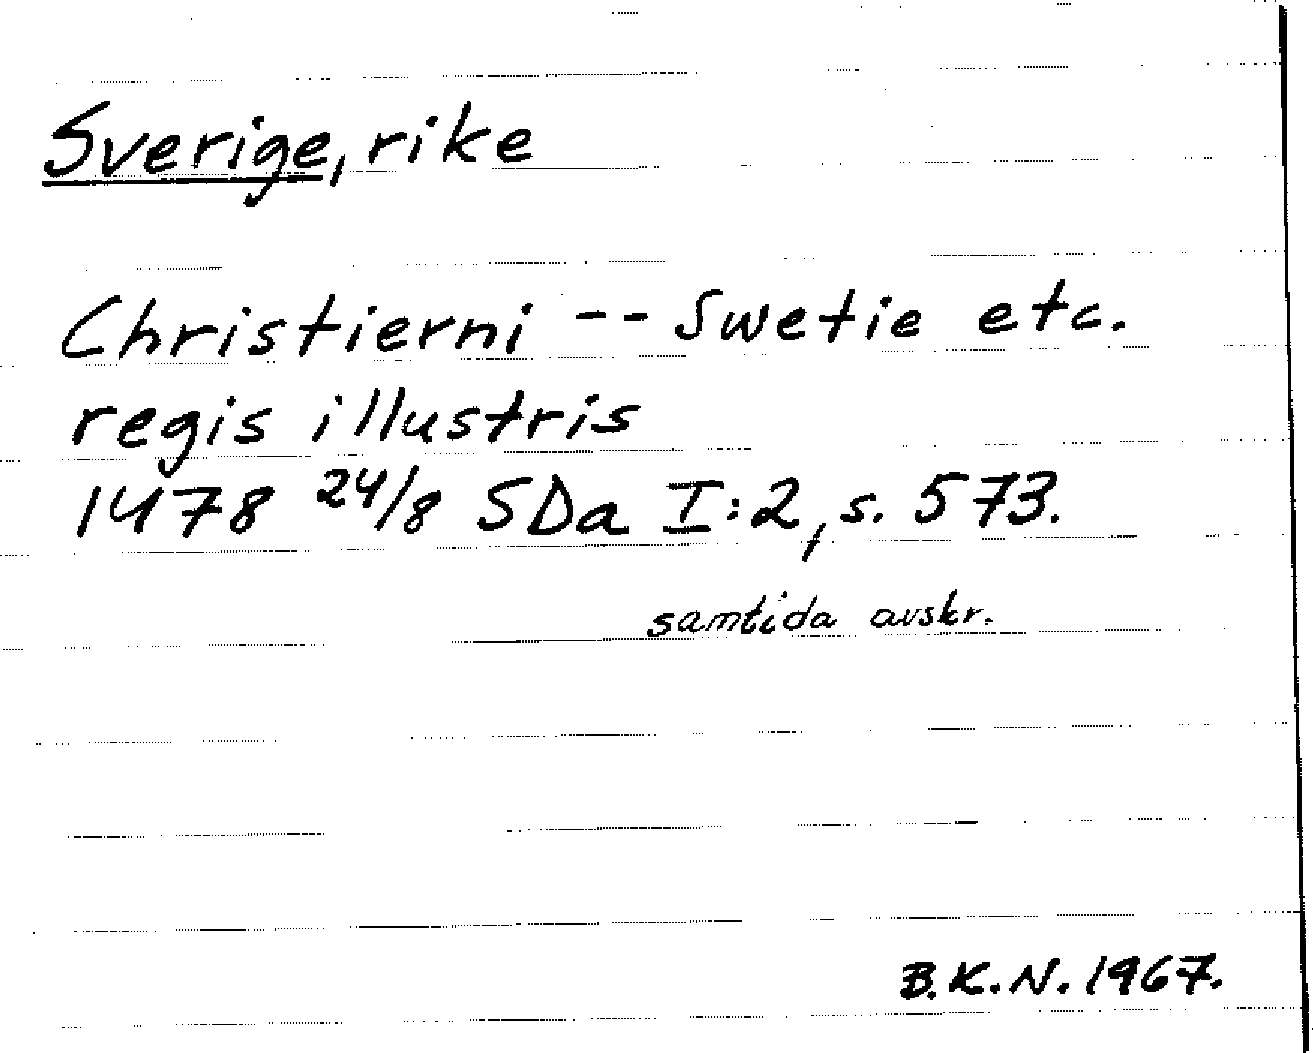 Sverige, rike
Christierni -- Swetie etc.
regis illustris
1478 24/8 SDa I:2, s. 573.
samtida avskr.
B.K.N. 1967.